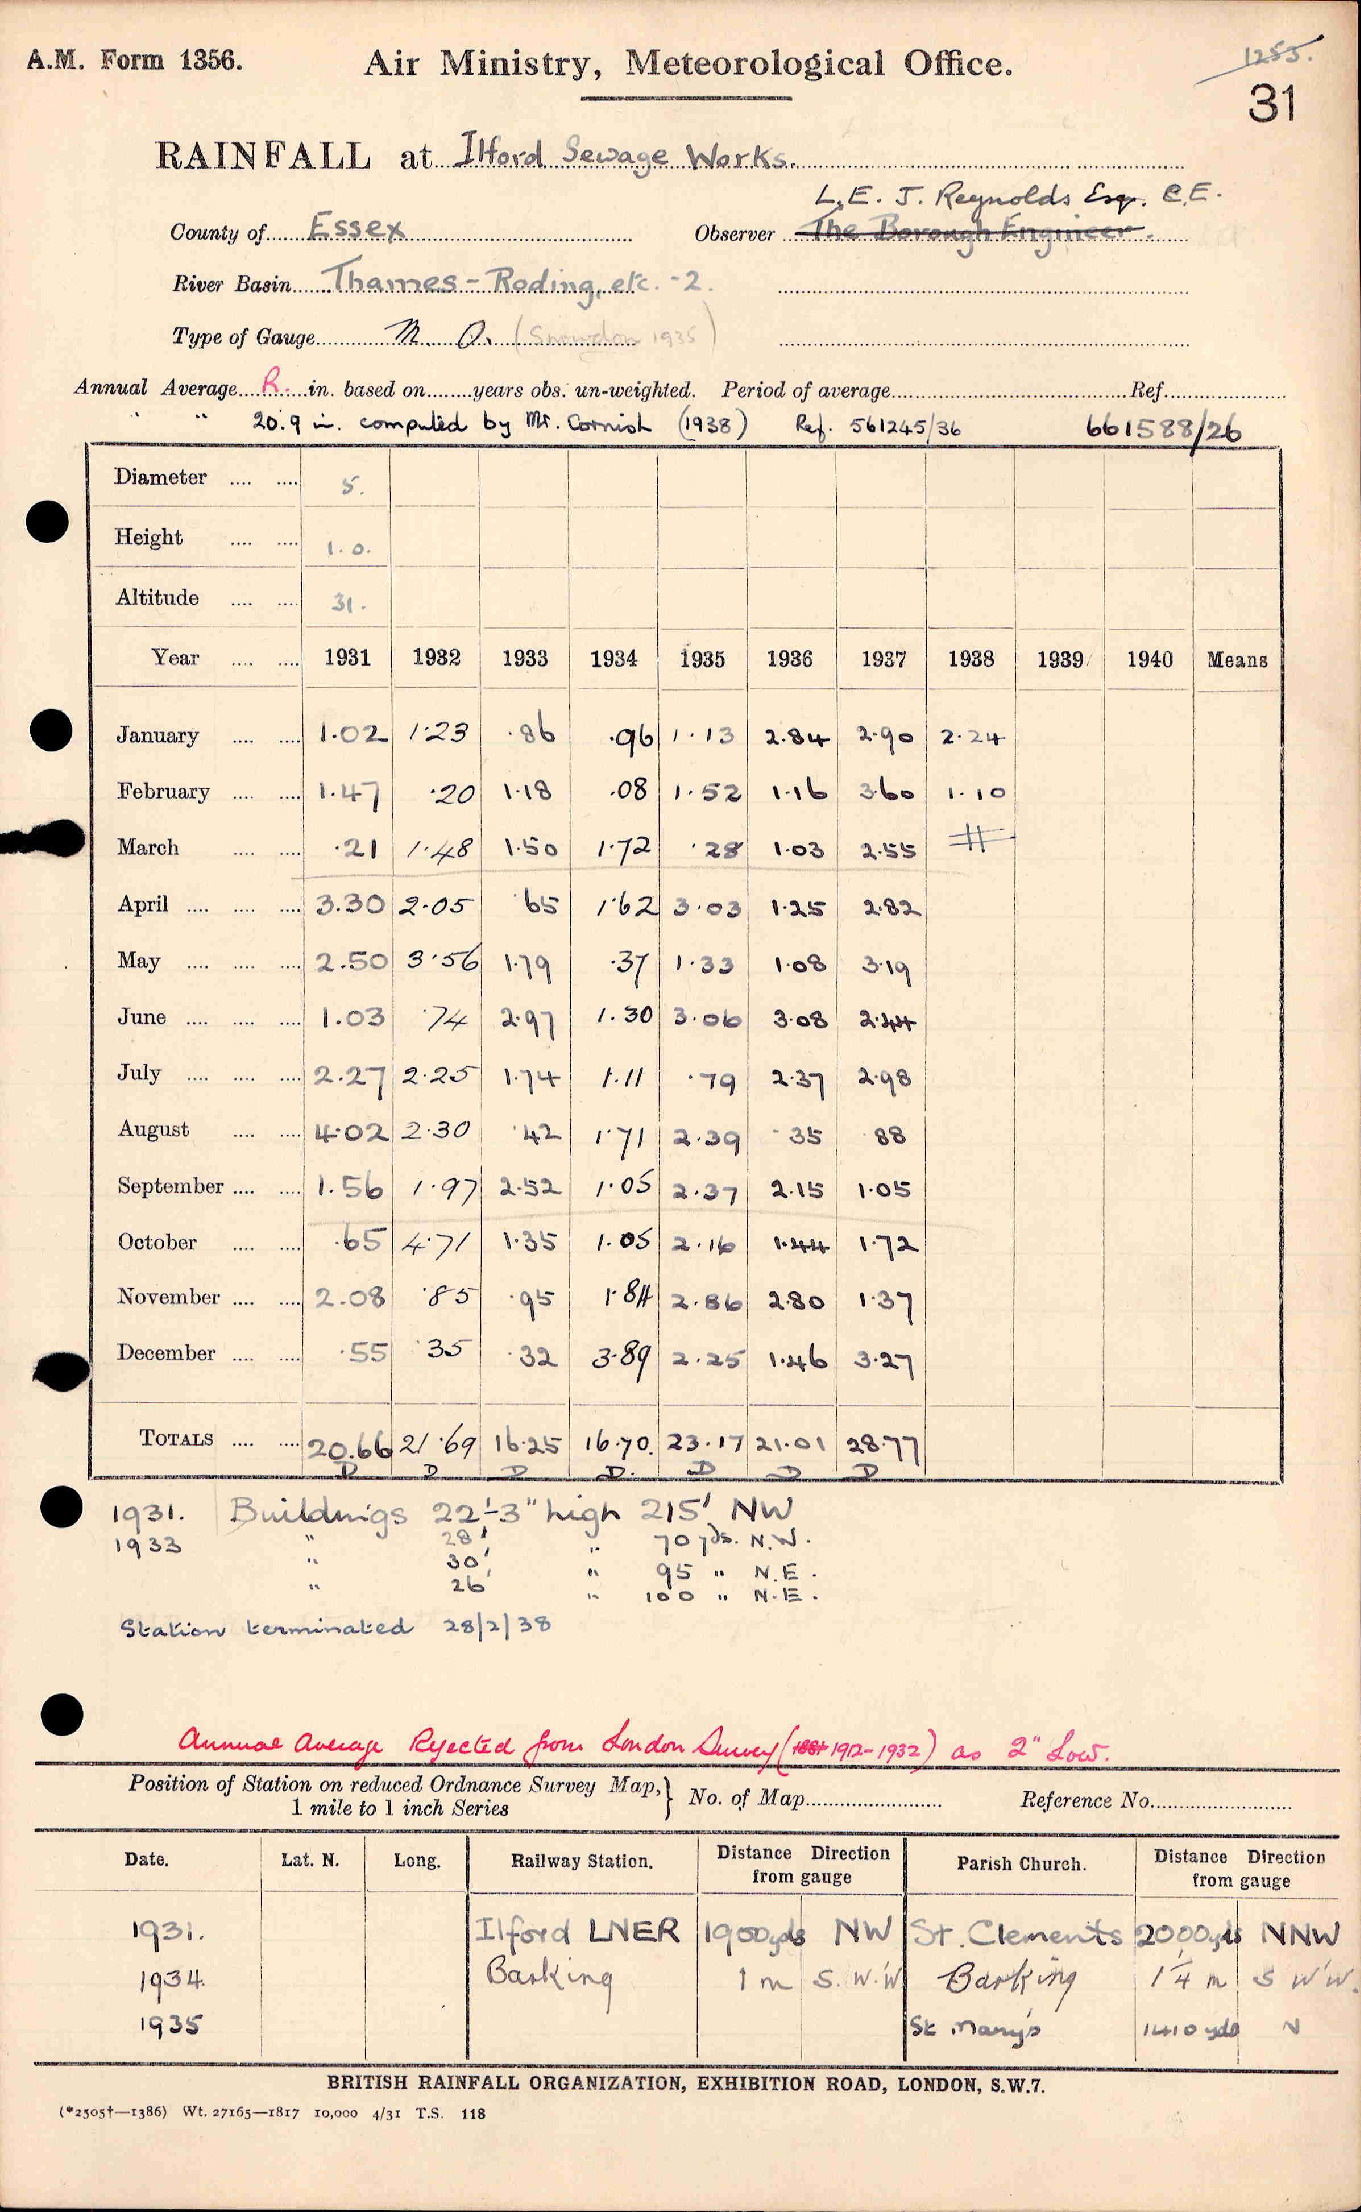 A.M. Form 1356.
Air Ministry, Meteorological Office.
1255.
31
RAINFALL at Ilford Sewage Works.
L.E.J. Reynolds Esqr. C.E.
County of Essex Observer The Borough Engineer.
River Basin Thames - Roding, etc. - 2.
Type of Gauge M. O. (Snowdon 1935)
Annual Average R. in. based on years obs. un-weighted. Period of average Ref.
" " 20.9 in. computed by Mr. Cornish (1938) Ref. 561245/36 661588/26
Diameter 5.
Height 1.0.
Altitude 31.
Year 1931 1932 1933 1934 1935 1936 1937 1938 1939 1940 Means
January 1.02 1.23 .86 .96 1.13 2.84 2.90 2.24
February 1.47 .20 1.18 .08 1.52 1.16 3.60 1.10
March .21 1.48 1.50 1.72 .28 1.03 2.55
April 3.30 2.05 .65 1.62 3.03 1.25 2.82
May 2.50 3.56 1.79 .37 1.33 1.08 3.19
June 1.03 .74 2.97 1.30 3.06 3.08 2.44
July 2.27 2.25 1.74 1.11 .79 2.37 2.98
August 4.02 2.30 .42 1.71 2.39 .35 .88
September 1.56 1.97 2.52 1.05 2.37 2.15 1.05
October .65 4.71 1.35 1.05 2.16 1.44 1.72
November 2.08 .85 .95 1.84 2.86 2.80 1.37
December .55 .35 .32 3.89 2.25 1.46 3.27
TOTALS 20.66 21.69 16.25 16.70. 23.17 21.01 28.77
D D D D. D D D
1931. Buildings 22'-3" high 215' NW
1933 " 28' " 70 yds. N.W.
" 30' " 95 " N.E.
" 26' " 100 " N.E.
Station terminated 28/2/38
Annual Average Rejected from London Survey (1881 1912-1932) as 2" Low.
Position of Station on reduced Ordnance Survey Map, } No. of Map Reference No.
1 mile to 1 inch Series
Date. Lat. N. Long. Railway Station. Distance Direction from gauge Parish Church. Distance Direction from gauge
1931. Ilford LNER 1900 yds NW St. Clements 2000 yds NNW
1934. Barking 1 m S.W.'W Barking 1¼ m S W'W.
1935 St Mary's 1410 yds N
BRITISH RAINFALL ORGANIZATION, EXHIBITION ROAD, LONDON, S.W.7.
(*2505†—1386) Wt. 27165—1817 10,000 4/31 T.S. 118